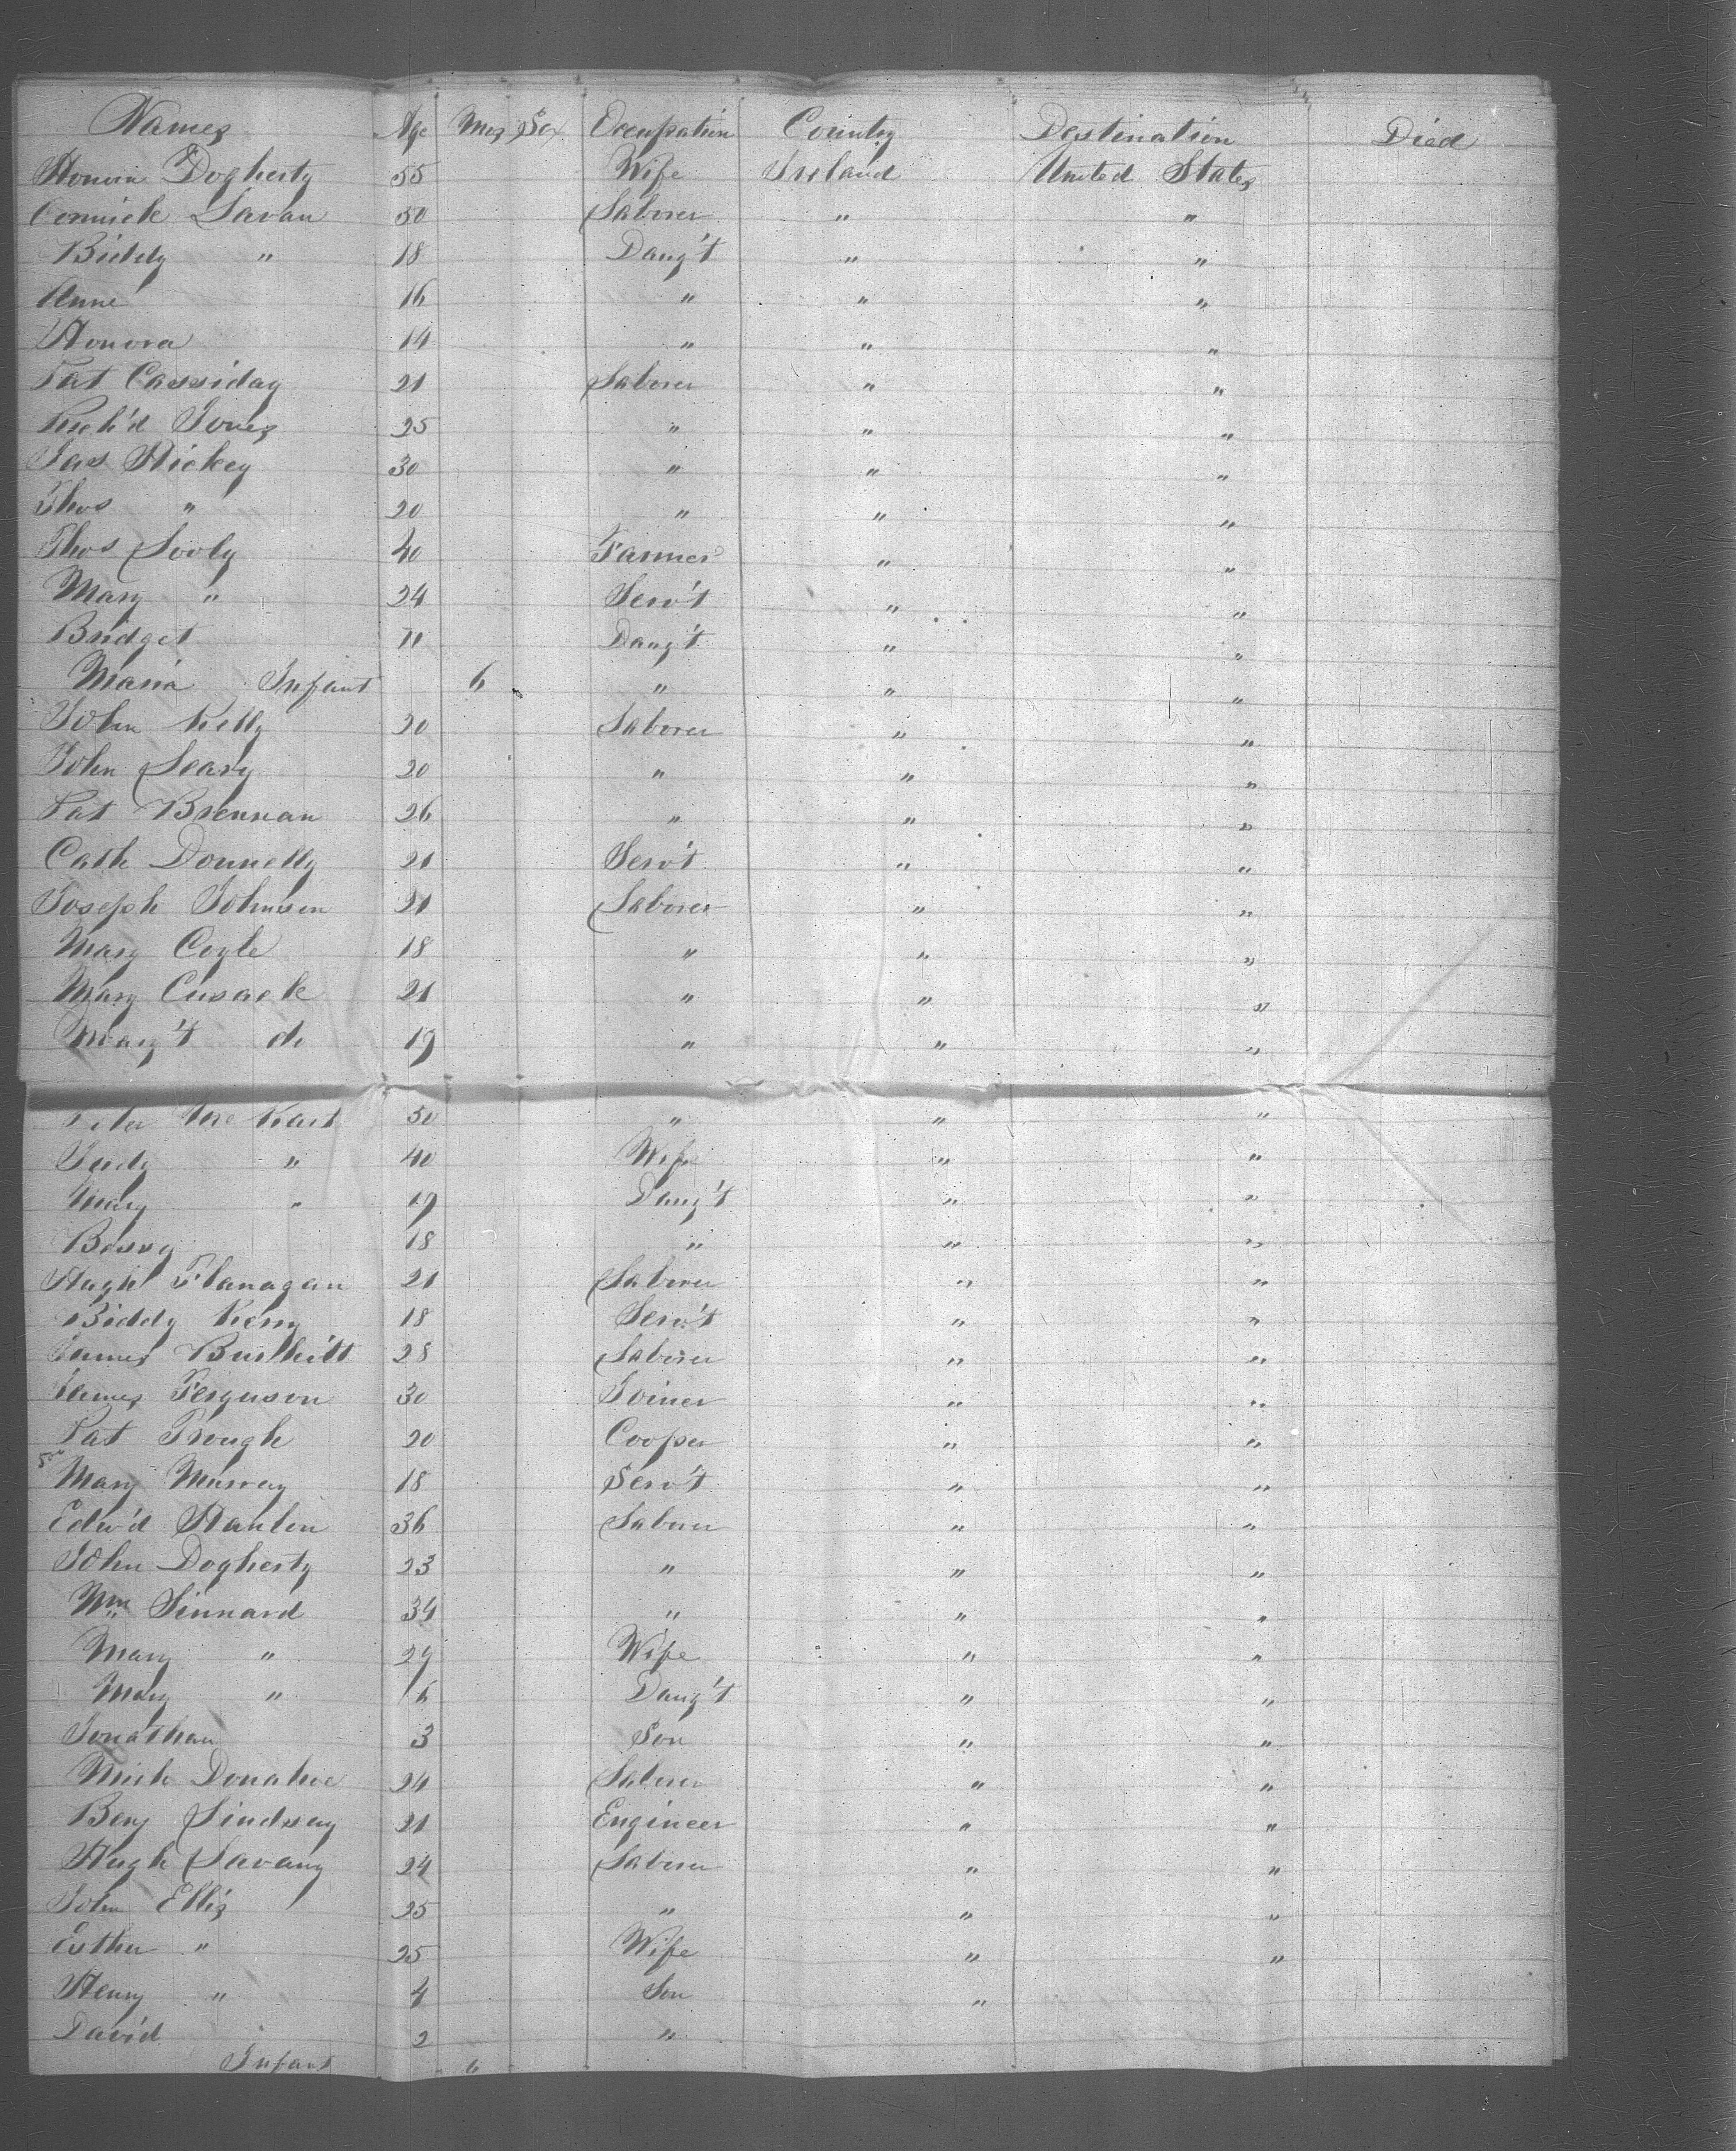 Names Age Mos Sex Occupation Country Destination Died
Honora Dogherty 55 Wife Ireland United States
Cormick Lavan 50 Laborer " "
Biddy " 18 Daug't " "
Anne 16 " " "
Honora 14 " " "
Pat Cassiday 21 Laborer " "
Rich'd Jones 25 " " "
Jas Hickey 30 " " "
Thos " 20 " " "
Thos Sooly 40 Farmer " "
Mary " 24 Serv't " "
Bridget 11 Daug't " "
Maria Infant 6 " " "
John Kelly 20 Laborer " "
John Leary 20 " " "
Pat Brennan 26 " " "
Cath Donnelly 21 Serv't " "
Joseph Johnson 21 Laborer " "
Mary Coyle 18 " " "
Mary Cusack 21 " " "
Marg't do 19 " " "
Peter Mc 50 " " "
Judy " 40 Wife " "
Mary " 19 Daug't " "
Bessy 18 " " "
Hugh Flanagan 21 Laborer " "
Biddy Keny 18 Serv't " "
James Burkitt 28 Laborer " "
James Ferguson 30 Joiner " "
Pat Keough 20 Cooper " "
Mary Murray 18 Serv't " "
Edw'd Hanlon 36 Laborer " "
John Dogherty 23 " " "
Wm Sinnard 34 " " "
Mary " 29 Wife " "
Mary " 6 Daug't " "
Jonathan 3 Son " "
Mick Donahoe 24 Laborer " "
Benj Lindsay 21 Engineer " "
Hugh Savany 24 Laborer " "
John Ellis 25 " " "
Esther " 25 Wife " "
Henry " 4 Son "
David 2 "
Infant 6